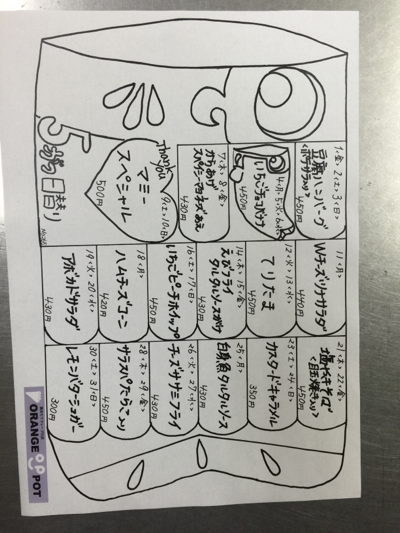 5月の日替り
1<金> 2<土> 3<日>
豆腐ハンバーグ
450円
4<月> 5<火> 6<水>
いちごチョコバナナ
450円
7<木> 8<金>
からあげ
スペシャルマヨネーズあえ
430円
Thank you
9<土> 10<日>
マミー
スペシャル
500円
11<月>
Wチーズツナサラダ
440円
12<火> 13<水>
てりたま
450円
14<木> 15<金>
えびフライ
タルタルソースがけ
430円
16<土> 17<日>
いちごピーチホイップ
450円
18<月>
ハムチーズコーン
420円
19<火> 20<水>
アボカドサラダ
430円
21<木> 22<金>
塩やきそば
<目玉焼き入り>
450円
23<土> 24<日>
カスタードキャラメル
350円
25<月>
白身魚タルタルソース
430円
26<火> 27<水>
チーズササミフライ
430円
28<木> 29<金>
サラスパたらこ入り
450円
30<土> 31<日>
レモンバターシュガー
300円
ORANGE POT